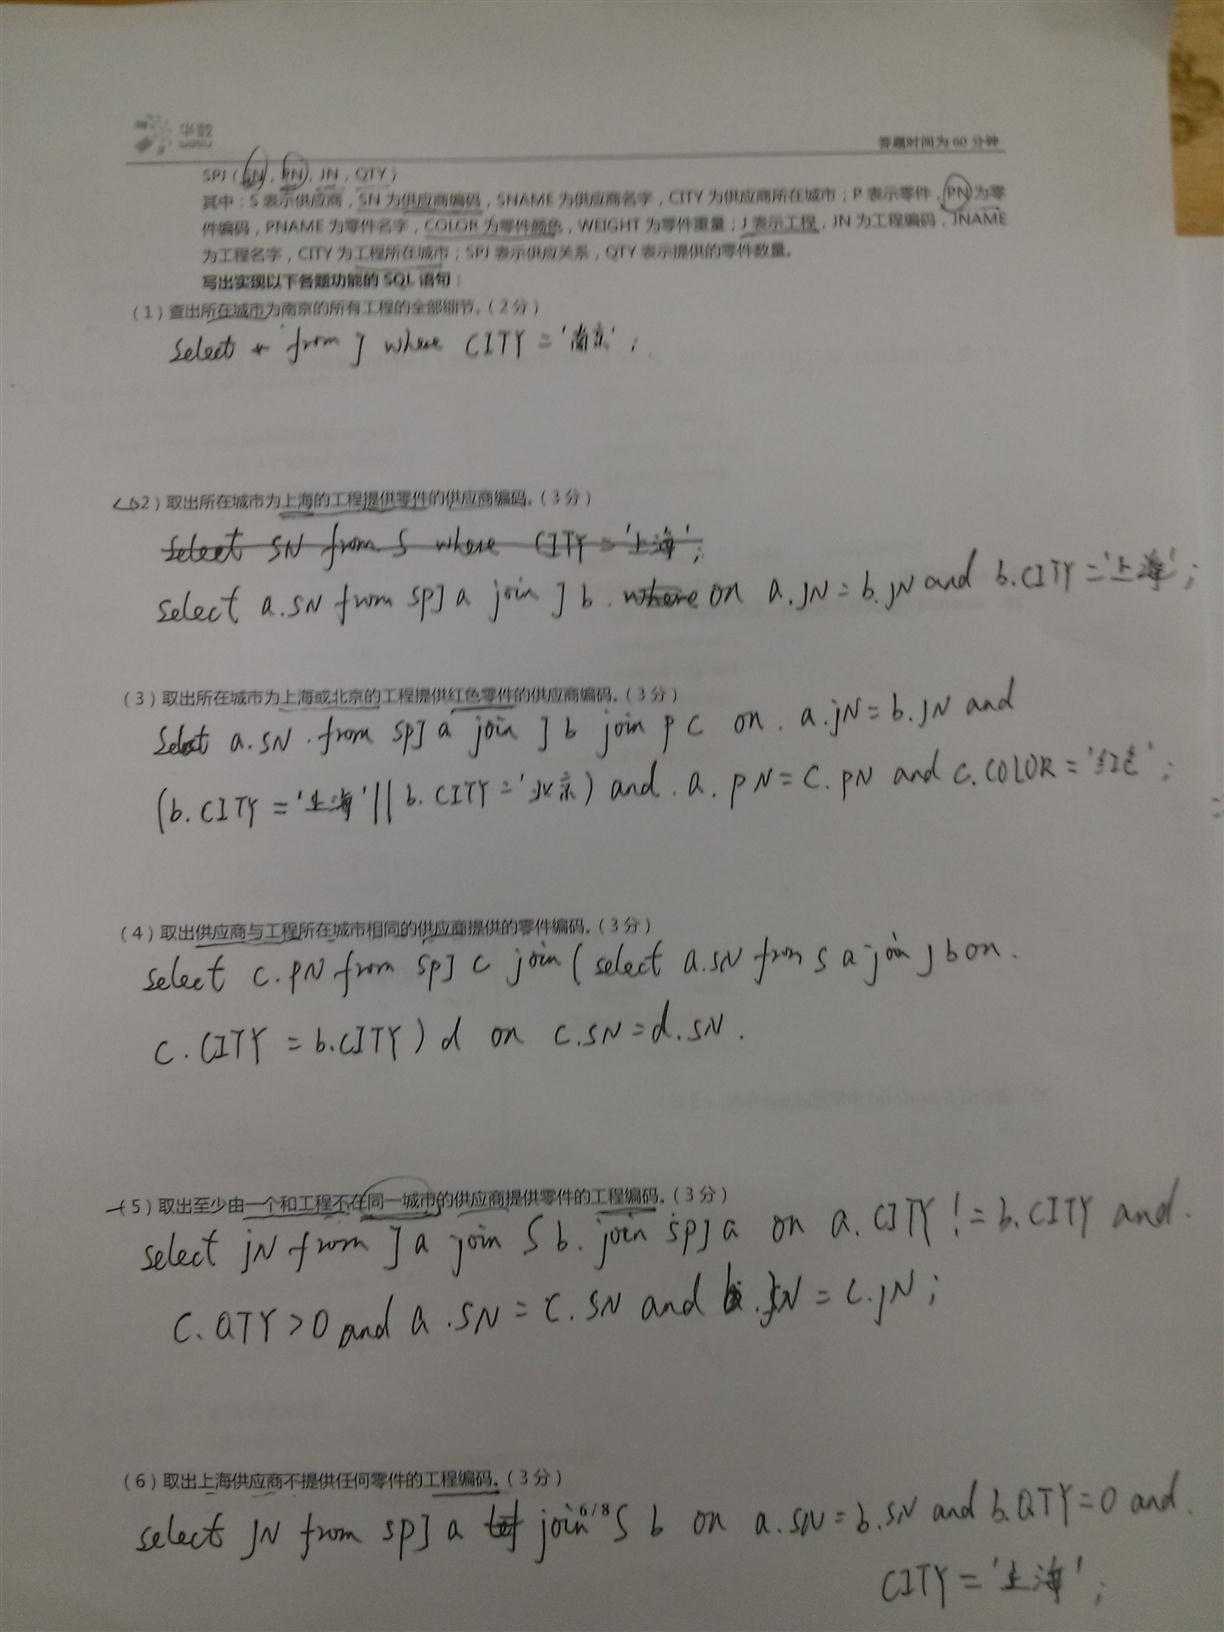 答题时间为 60 分钟
SPJ(SN,PN,JN,QTY)
其中:S 表示供应商,SN 为供应商编码,SNAME 为供应商名字,CITY 为供应商所在城市;P 表示零件,PN 为零
件编码,PNAME 为零件名字,COLOR 为零件颜色,WEIGHT 为零件重量;J 表示工程,JN 为工程编码,JNAME
为工程名字,CITY 为工程所在城市;SPJ 表示供应关系,QTY 表示提供的零件数量。
写出实现以下各题功能的 SQL 语句:
(1)查出所在城市为南京的所有工程的全部细节。(2分)
select * from J where CITY = '南京';
(2)取出所在城市为上海的工程提供零件的供应商编码。(3分)
select SN from S where CITY = '上海';
select a.SN from SPJ a join J b where on a.JN = b.JN and b.CITY = '上海';
(3)取出所在城市为上海或北京的工程提供红色零件的供应商编码。(3分)
Select a.SN from SPJ a join J b join P c on a.jN = b.JN and
(b.CITY = '上海' || b.CITY = '北京') and a.PN = C.PN and c.COLOR = '红色';
(4)取出供应商与工程所在城市相同的供应商提供的零件编码。(3分)
select c.PN from SPJ c join (select a.SN from S a join J b on
c.CITY = b.CITY) d on c.SN = d.SN.
(5)取出至少由一个和工程不在同一城市的供应商提供零件的工程编码。(3分)
select jN from J a join S b join SPJ a on a.CITY != b.CITY and
C.QTY > 0 and a.SN = C.SN and b.JN = C.JN;
(6)取出上海供应商不提供任何零件的工程编码。(3分)
select JN from SPJ a join S b on a.SN = b.SN and b.QTY = 0 and
6/8
CITY = '上海';